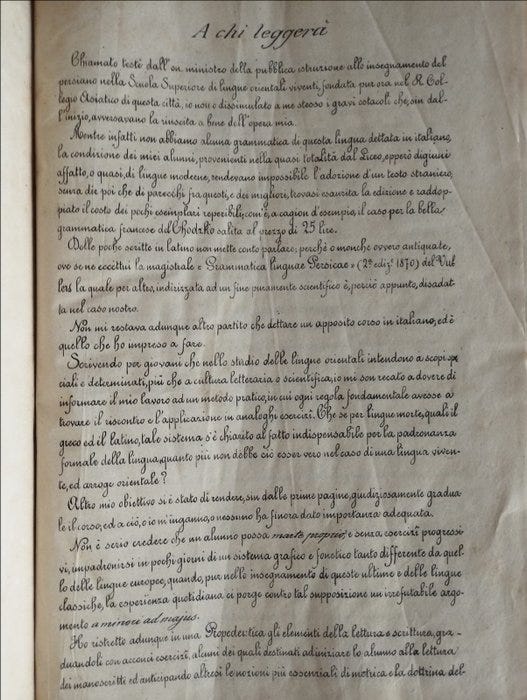 A chi leggerà
Chiamato testè dall'on. ministro della pubblica istruzione allo insegnamento del
persiano nella Scuola Superiore di lingue orientali viventi, fondata pur ora nel R. Col-
legio Asiatico di questa città, io non ò dissimulato a me stesso i gravi ostacoli che, sin dal-
l'inizio, avversavano la riuscita a bene dell'opera mia.
Mentre infatti non abbiamo alcuna grammatica di questa lingua dettata in italiano,
la condizione dei miei alunni, provenienti nella quasi totalità dal Liceo, epperò digiuni
affatto, o quasi, di lingue moderne, rendevano impossibile l'adozione di un testo straniero,
senza dir poi che di parecchi fra questi, e dei migliori, trovasi esaurita la edizione e raddop-
piato il costo dei pochi esemplari reperibili; com'è, a cagion d'esempio, il caso per la bella
grammatica francese del Chodzko salita al prezzo di 25 lire.
Delle poche scritte in latino non mette conto parlare; perchè o monche ovvero antiquate,
ove se ne eccettui la magistrale « Grammatica linguae Persicae » (2ª ediz. 1870) del Vul
lers la quale per altro, indirizzata ad un fine puramente scientifico è, perciò appunto, disadat
ta nel caso nostro.
Non mi restava adunque altro partito che dettare un apposito corso in italiano, ed è
quello che ho impreso a fare.
Scrivendo per giovani che nello studio delle lingue orientali intendono a scopi spe
ciali e determinati, più che a cultura letteraria o scientifica, io mi son recato a dovere di
informare il mio lavoro ad un metodo pratico, in cui ogni regola fondamentale avesse a
trovare il riscontro e l'applicazione in analoghi esercizi. Che se per lingue morte, quali il
greco ed il latino, tale sistema s'è chiarito al fatto indispensabile per la padronanza
formale della lingua, quanto più non debbe ciò esser vero nel caso di una lingua viven-
te, ed arroge orientale?
Altro mio obiettivo si è stato di rendere, sin dalle prime pagine, giudiziosamente gradua
le il corso; ed a ciò, o io m'inganno, o nessuno ha finora dato importanza adeguata.
Non è serio credere che un alunno possa marte proprio, e senza esercizi progressi
vi, impadronirsi in pochi giorni di un sistema grafico e fonetico tanto differente da quel-
lo delle lingue europee, quando, pur nello insegnamento di queste ultime e delle lingue
classiche, la esperienza quotidiana ci porge contro tal supposizione un irrefutabile argo-
mento a minori ad majus.
Ho ristretto adunque in una Propedeutica gli elementi della lettura e scrittura, gra-
duandoli con acconci esercizi, alcuni dei quali destinati ad iniziare lo alunno alla lettura
dei manoscritti ed anticipando altresì le nozioni più essenziali di metrica e la dottrina del-